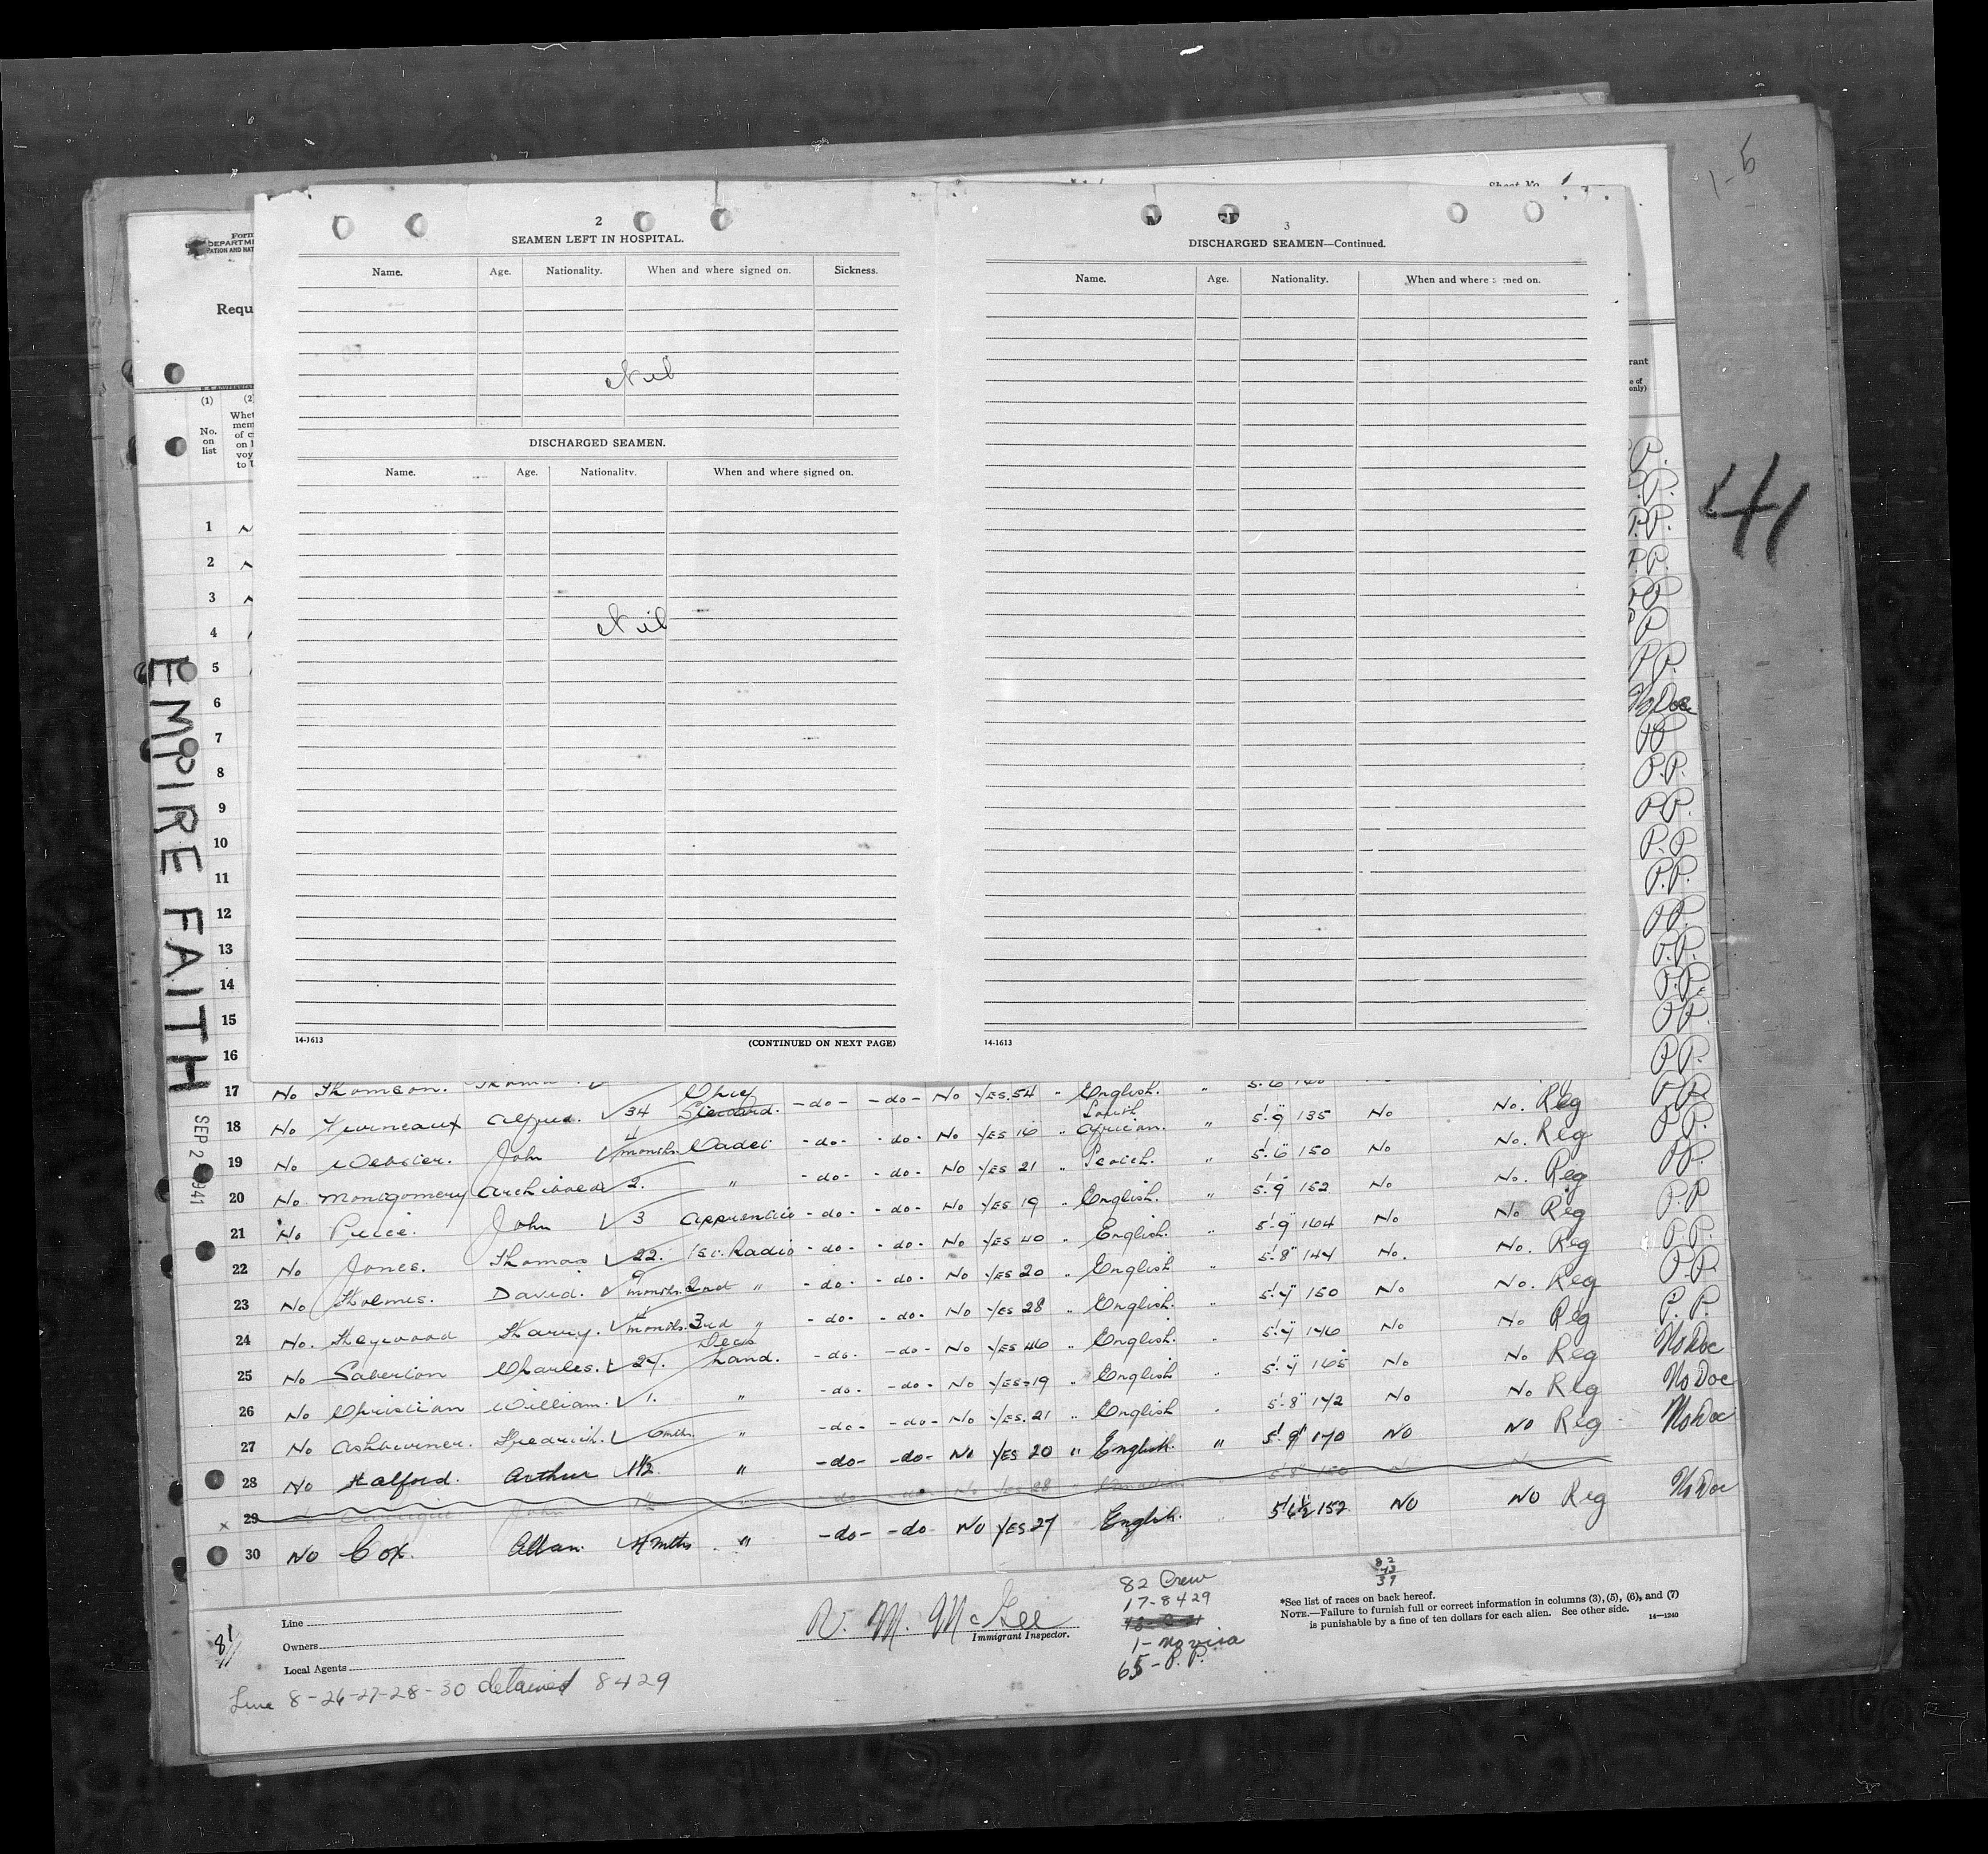 1-5
Sheet No.
2
SEAMEN LEFT IN HOSPITAL.
Name. Age. Nationality. When and where signed on. Sickness.
Nil
DISCHARGED SEAMEN.
Name. Age. Nationality. When and where signed on.
Nil
14-1613 (CONTINUED ON NEXT PAGE)
3
DISCHARGED SEAMEN—Continued.
Name. Age. Nationality. When and where signed on.
14-1613
Form
DEPARTME
ATION AND NAT
Requ
(1) (2)
No. on list
Whet
mem
of c
on l
voy
to U
rant
e of
only)
41
EMPIRE FAITH
SEP 2 1941
1
2
3
4
5
6
7
8
9
10
11
12
13
14
15
16
P.P.
P.P.
P.P.
P.P.
P.P.
P.P.
P.P.
No Doc
P.P.
P.P.
P.P.
P.P.
P.P.
P.P.
P.P.
P.P.
P.P.
P.P.
17 No Thomson.
18 No Alfred. 34 Chief Steward. -do- -do- No Yes 54 " English. "
19 No Webster. John 4 months Cadet -do- -do- No Yes 16 " South African. " 5'.9" 135 No No. Reg P.P.
20 No Montgomery Archibald 2. " -do- -do- No Yes 21 " Scotch. " 5'.6" 150 No No. Reg P.P.
21 No John 3 Apprentice -do- -do- No Yes 19 " English. " 5'.9" 152 No No. Reg P.P.
22 No Jones. Thomas 22. 1st. Radio -do- -do- No Yes 40 " English. 5'.9" 164 No No Reg P.P.
23 No Holmes. David. 9 months 2nd " -do- -do- No Yes 20 " English 5'.8" 144 No. No. Reg P.P.
24 No. Heywood Harry. 4 months. 3rd " -do- -do- No Yes 28 " English. 150 No No. Reg P.P.
25 No Saberton Charles. 24. Deck hand. -do- -do- No Yes 46 " English. 146 No No Reg P.P.
26 No Christian William. 1. " -do- -do- No Yes 19 " English 165 No No Reg No Doc
27 No Ashburner. Fredrick. 6 mths. " -do- -do- No Yes. 21 " English 5'.8" 172 No No Reg No Doc
28 No Halford. Arthur 1½ " -do- -do- No Yes 20 " English. " 5'.9" 170 No No Reg No Doc
29 John -do- -do- No Yes 28 " Canadian 5'.8" 150
30 No Cox. Allan 4 mths " -do- -do- No Yes 27 English. 5'6½ 152 No No Reg No Doc
81
Line
Owners
Local Agents
Line 8-26-27-28-30 detained 8429
R. M. McGee
Immigrant Inspector.
82 Crew
17-8429
1- no visa
65- P.P.
*See list of races on back hereof.
NOTE.—Failure to furnish full or correct information in columns (3), (5), (6), and (7)
is punishable by a fine of ten dollars for each alien. See other side. 14—1240